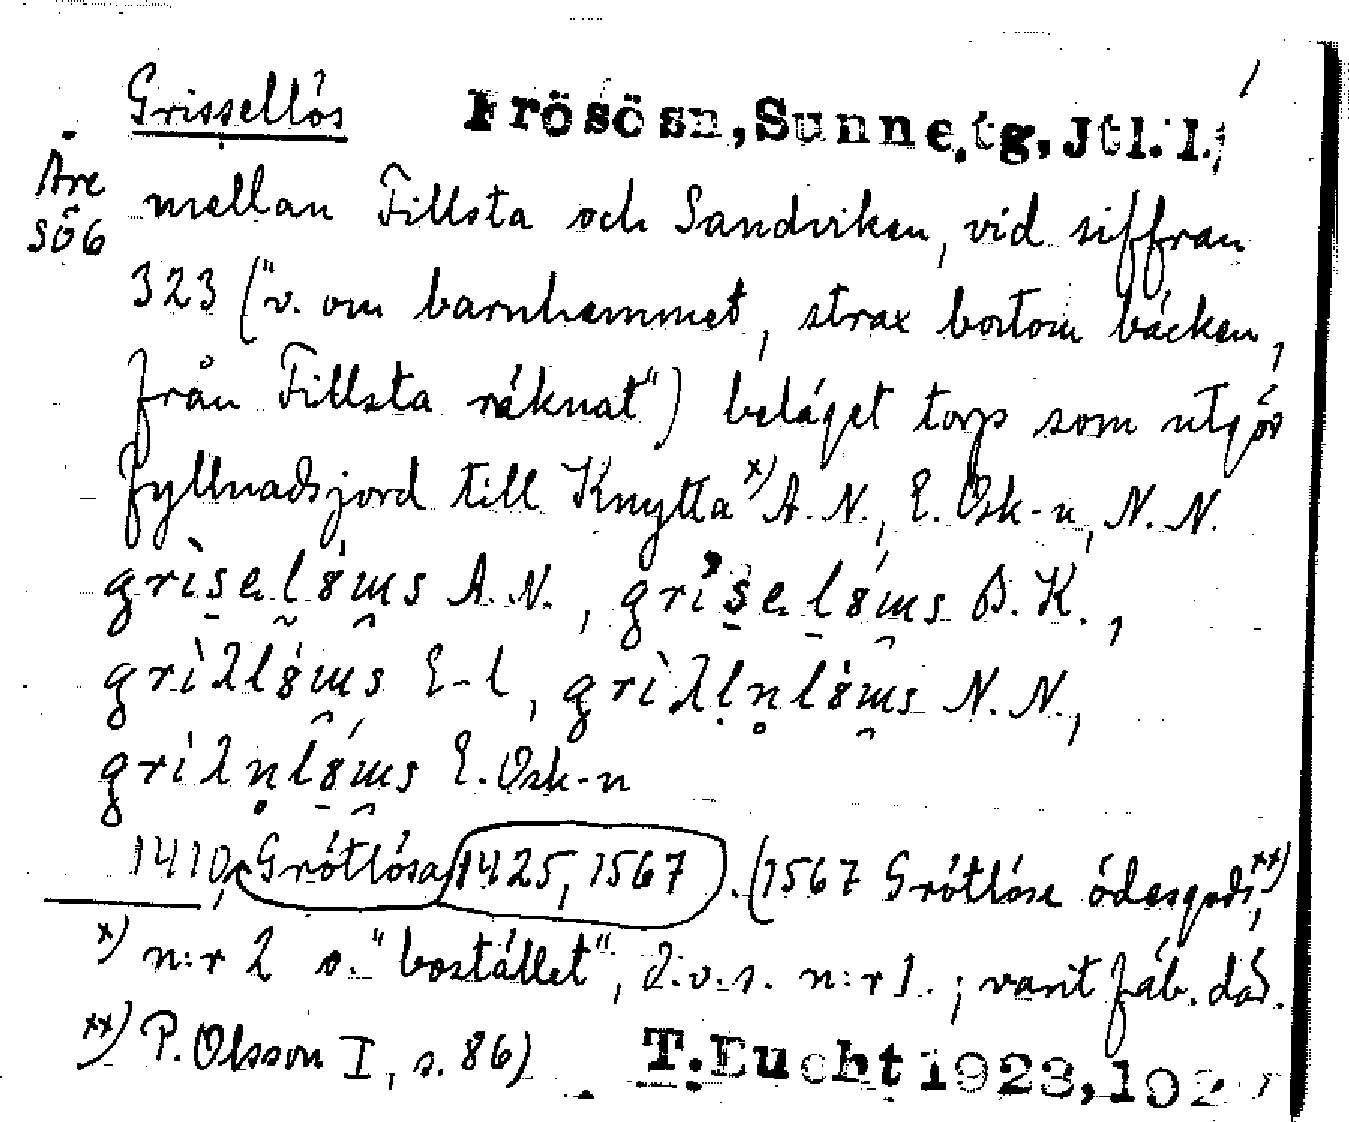 Grissellös Frösösn, Sunne.tg, Jtl.l.
Åre
SÖ6
mellan Fillsta och Sandviken, vid siffran
323 ("v. om barnhemmet, strax bortom bäcken,
från Fillsta räknat") beläget torp som utgör
fyllnadsjord till Knytta x) A.N., E. Osk-n, N.N.
A.N., B.K.,
E-l, N.N.,
E. Osk-n
1410, Grötlösa 1425, 1567. (1567 Grötlöse ödesgods, xx)
x) n:r 2 o. "bostället", d.v.s. n:r 1.; varit fäb. där.
xx) P. Olsson I, s. 86)
T. Eucht 1923,